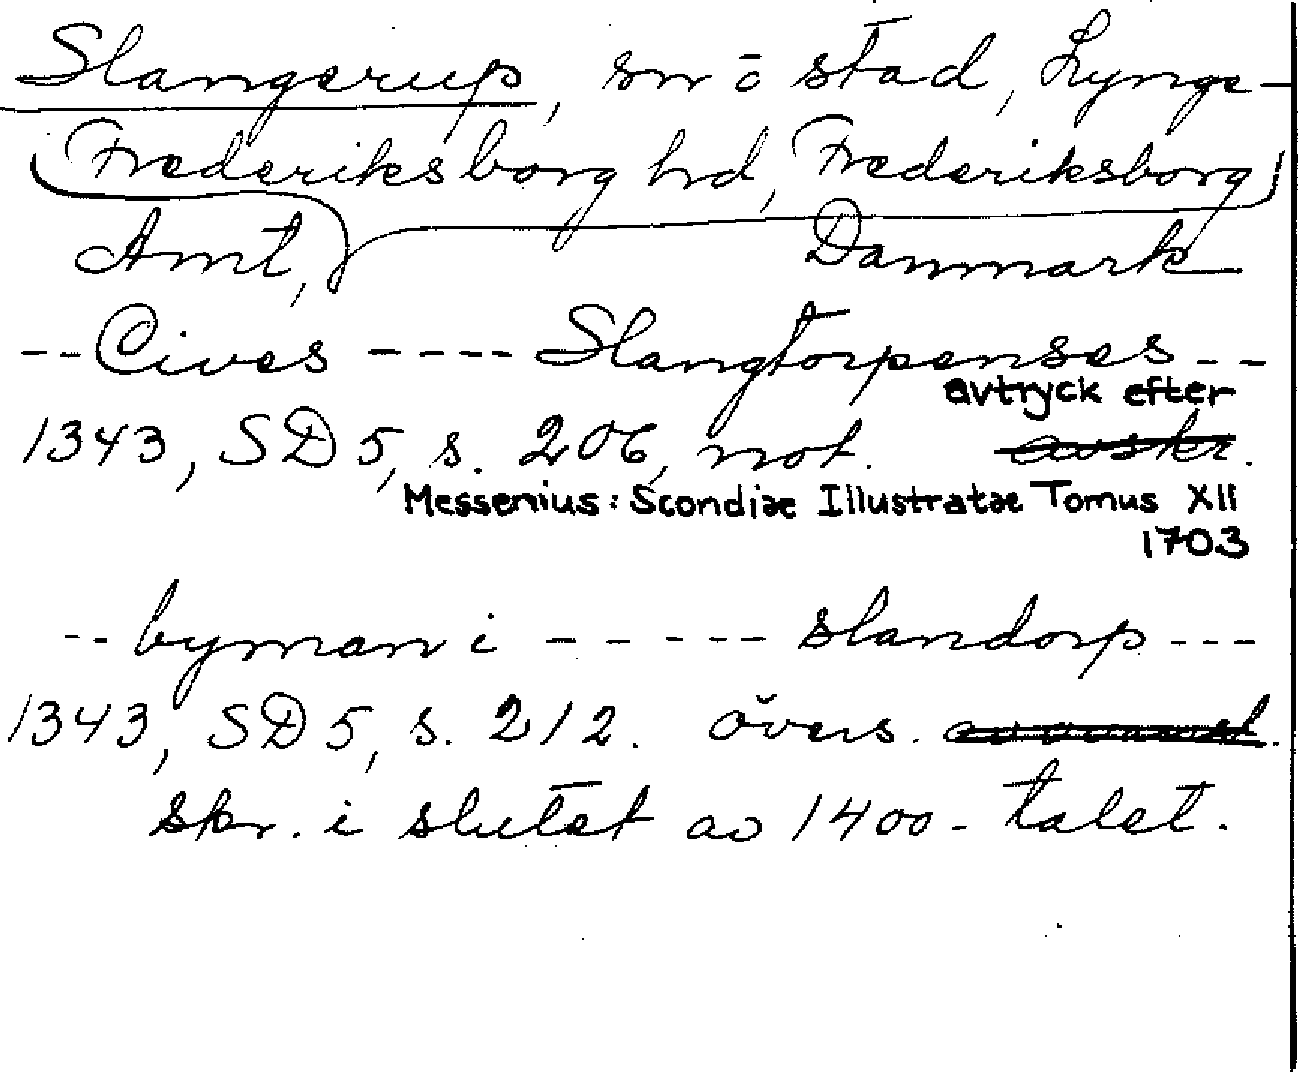 Slangerup, sn ō stad, Lynge-
Frederiksborg hrd, Frederiksborg
Amt, Danmark
--Cives ---- Slangtorpenses--
avtryck efter
1343, SD 5, s. 206, not. avskr.
Messenius: Scondiæ Illustratæ Tomus XII
1703
-- byman i ----- slandorp ---
1343, SD 5, s. 212. övers.
skr. i slutet av 1400-talet.